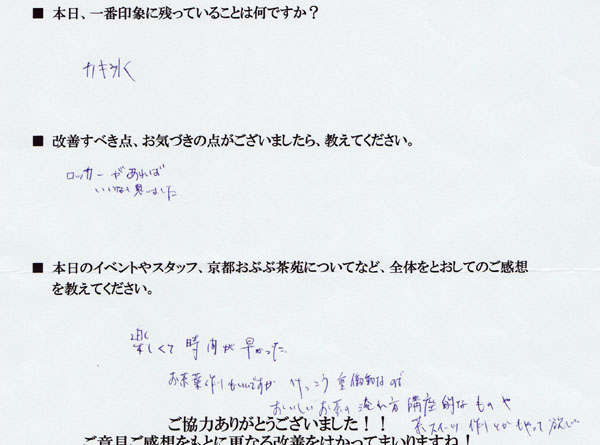 ■ 本日、一番印象に残っていることは何ですか？
カキ氷
■ 改善すべき点、お気づきの点がございましたら、教えてください。
ロッカーがあれば
いいなと思いました
■ 本日のイベントやスタッフ、京都おぶぶ茶苑についてなど、全体をとおしてのご感想
を教えてください。
楽しくて時間が早かった。
お茶葉作りもいいですが けっこう重働的なので
おいしいお茶の淹れ方講座的なものや
茶スイーツ作りとかもやって欲しい
ご協力ありがとうございました！！
ご意見ご感想をもとに更なる改善をはかってまいりますね！